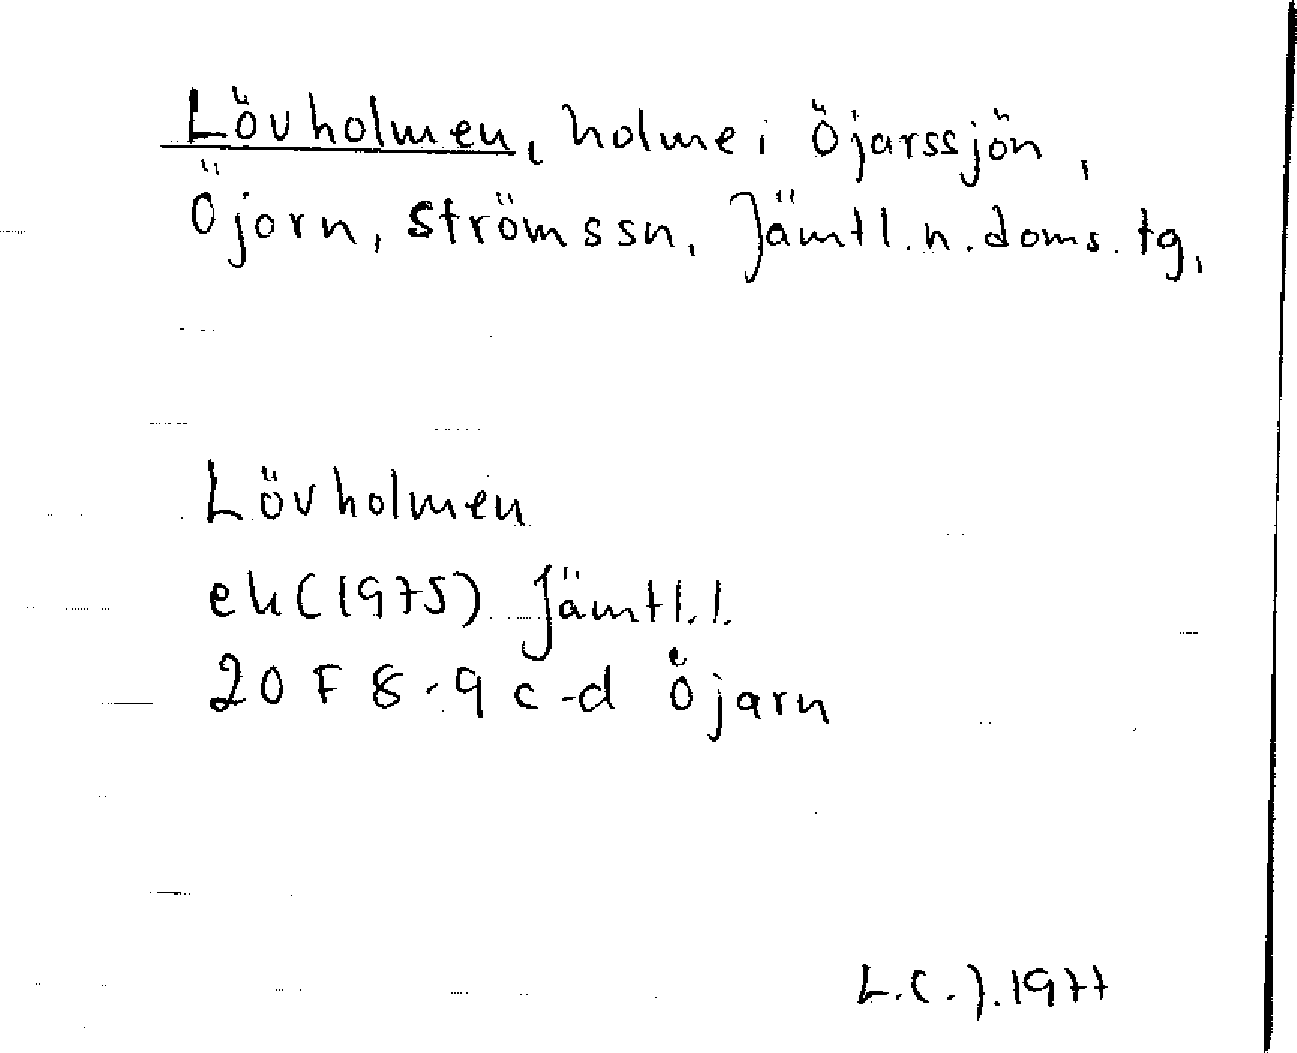 Lövholmen, holme i Öjarssjön,
Öjorn, Strömssn, Jämtl.n.doms.tg,
Lövholmen
ek (1975) Jämtl.l.
20 F 8-9 c-d Öjarn
L.C.J. 1977